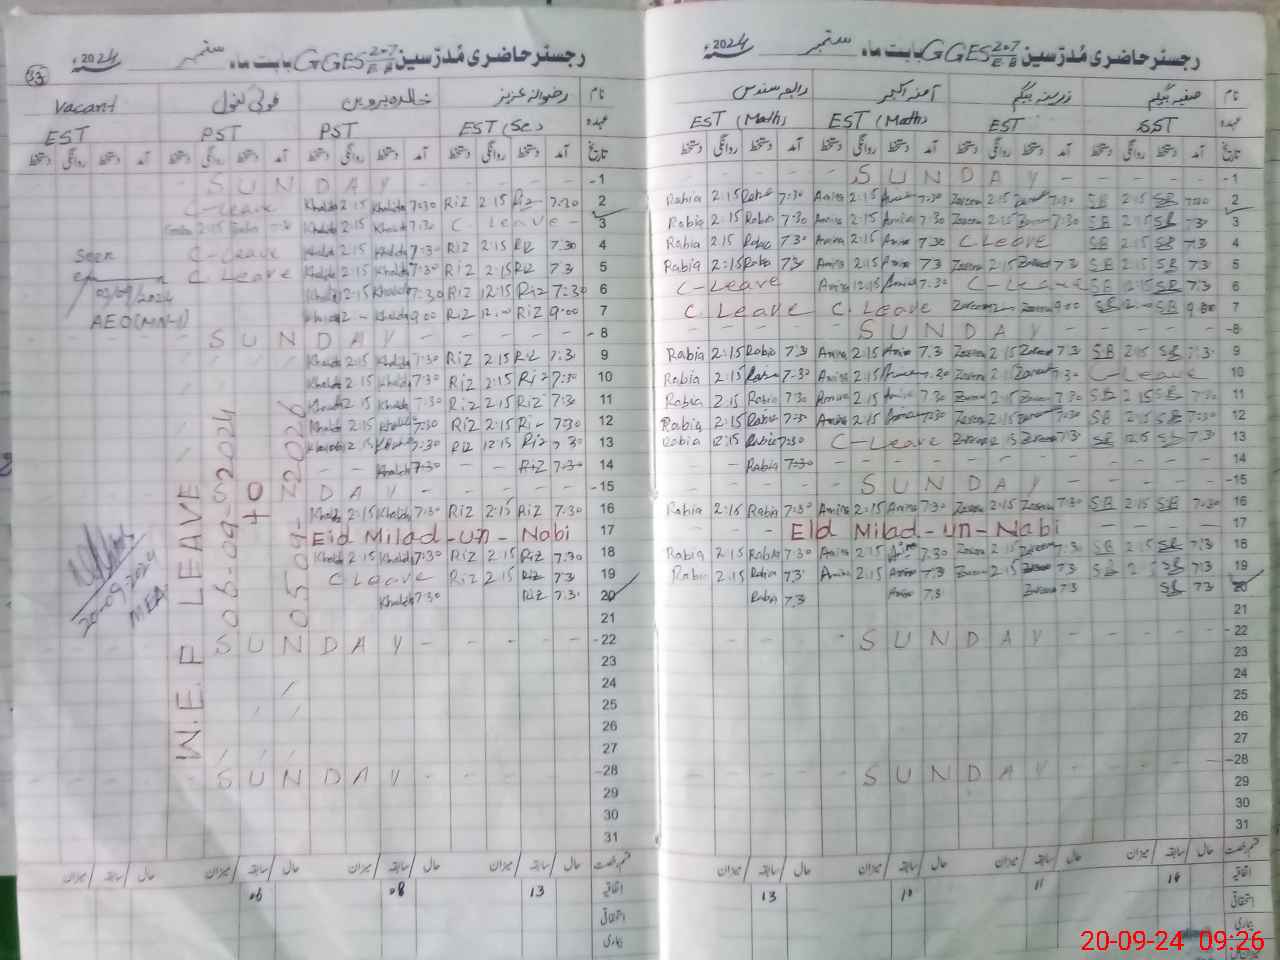 رجسٹر حاضری مُدرّسین GGES 207 E B بابت ماہ ستمبر 2024
نام صفیہ بیگم زرینہ بیگم آمنہ اکبر رابعہ سندس
عہدہ SST EST EST (Math) EST (Math)
تاریخ آمد دستخط روانگی دستخط آمد دستخط روانگی دستخط آمد دستخط روانگی دستخط آمد دستخط روانگی دستخط
1 - SUNDAY
Rabia 2:15 Rabia 7:30 Amina 2:15 Amina 7:30 Zareena 2:15 Zareena 7:30 SB 2:15 SB 7:30 2
Rabia 2:15 Rabia 7:30 Amina 2:15 Amina 7:30 Zareena 2:15 Zareena 7:30 SB 2:15 SB 7:30 3
Rabia 2:15 Rabia 7:30 Amina 2:15 Amina 7:30 C Leave SB 2:15 SB 7:3 4
Rabia 2:15 Rabia 7:3 Amina 2:15 Amina 7:3 Zareena 2:15 Zareena 7:3 SB 2:15 SB 7:3 5
C-Leave Amina 12:15 Amina 7:30 C-Leave SB 12:15 SB 7:3 6
C Leave C Leave Zareena Zareena 9:00 SB SB 9:00 7
- SUNDAY - 8
Rabia 2:15 Rabia 7:3 Amina 2:15 Amina 7:3 Zareena 2:15 Zareena 7:3 SB 2:15 SB 7:3 9
Rabia 2:15 Rabia 7:30 Amina 2:15 Amina 7:30 Zareena 2:15 Zareena 7:30 C-Leave 10
Rabia 2:15 Rabia 7:30 Amina 2:15 Amina 7:30 Zareena 2:15 Zareena 7:30 SB 2:15 SB 7:30 11
Rabia 2:15 Rabia 7:30 Amina 2:15 Amina 7:30 Zareena 2:15 Zareena 7:30 SB 2:15 SB 7:30 12
Rabia 12:15 Rabia 7:30 C-Leave Zareena 12:15 Zareena 7:3 SB 12:15 SB 7:3 13
- - Rabia 7:30 14
- SUNDAY - 15
Rabia 2:15 Rabia 7:30 Amina 2:15 Amina 7:30 Zareena 2:15 Zareena 7:30 SB 2:15 SB 7:30 16
Eid Milad-un-Nabi 17
Rabia 2:15 Rabia 7:30 Amina 2:15 Amina 7:30 Zareena 2:15 Zareena 7:3 SB 2:15 SB 7:3 18
Rabia 2:15 Rabia 7:3 Amina 2:15 Amina 7:3 Zareena 2:15 Zareena 7:3 SB 2 SB 7:3 19
Rabia 7:3 Amina 7:3 Zareena 7:3 SB 7:3 20
21
- SUNDAY - 22
23
24
25
26
27
- 28
SUNDAY 29
30
31
حال سابقہ میزان حال سابقہ میزان حال سابقہ میزان حال سابقہ میزان
اتفاقی 14 11 10 13
استحقاقی
بیماری
رجسٹر حاضری مُدرّسین GGES 207 E B بابت ماہ ستمبر 2024
33
نام رضوانہ عزیز خالدہ پروین Vacant
عہدہ EST (Sc) PST PST EST
تاریخ آمد دستخط روانگی دستخط آمد دستخط روانگی دستخط آمد دستخط روانگی دستخط آمد دستخط روانگی دستخط
SUNDAY - 1
C-Leave Khalida 2:15 Khalida 7:30 Riz 2:15 Riz 7:30 2
2:15 7:30 Khalida 2:15 Khalida 7:30 C Leave - 3
Seen C-Leave Khalida 2:15 Khalida 7:30 Riz 2:15 Riz 7:30 4
C Leave Khalida 2:15 Khalida 7:30 Riz 2:15 Riz 7:3 5
03/09/2024 Khalida 2:15 Khalida 7:30 Riz 12:15 Riz 7:30 6
AEO(MN-1) Khalida Khalida 9:00 Riz 12:00 Riz 9:00 7
SUNDAY - 8
Khalida 2:15 Khalida 7:30 Riz 2:15 Riz 7:3 9
Khalida 2:15 Khalida 7:30 Riz 2:15 Riz 7:30 10
Khalida 2:15 Khalida 7:30 Riz 2:15 Riz 7:30 11
Khalida 2:15 Khalida 7:30 Riz 2:15 Riz 7:30 12
Khalida 12:15 Khalida 7:30 Riz 12:15 Riz 7:30 13
- - Khalida 7:30 - - Riz 7:30 14
SUNDAY - 15
Khalida 2:15 Khalida 7:30 Riz 2:15 Riz 7:30 16
Eid Milad-un-Nabi 17
Khalida 2:15 Khalida 7:30 Riz 2:15 Riz 7:30 18
C Leave Riz 2:15 Riz 7:3 19
Khalida 7:30 Riz 7:3 20
21
SUNDAY - 22
23
24
25
26
27
- 28
SUNDAY 29
30
31
W.E.F LEAVE
06-09-2024
to
20-09-2024
MEA
حال سابقہ میزان حال سابقہ میزان حال سابقہ میزان حال سابقہ میزان
اتفاقی 13 08 06
استحقاقی
بیماری
20-09-24 09:26